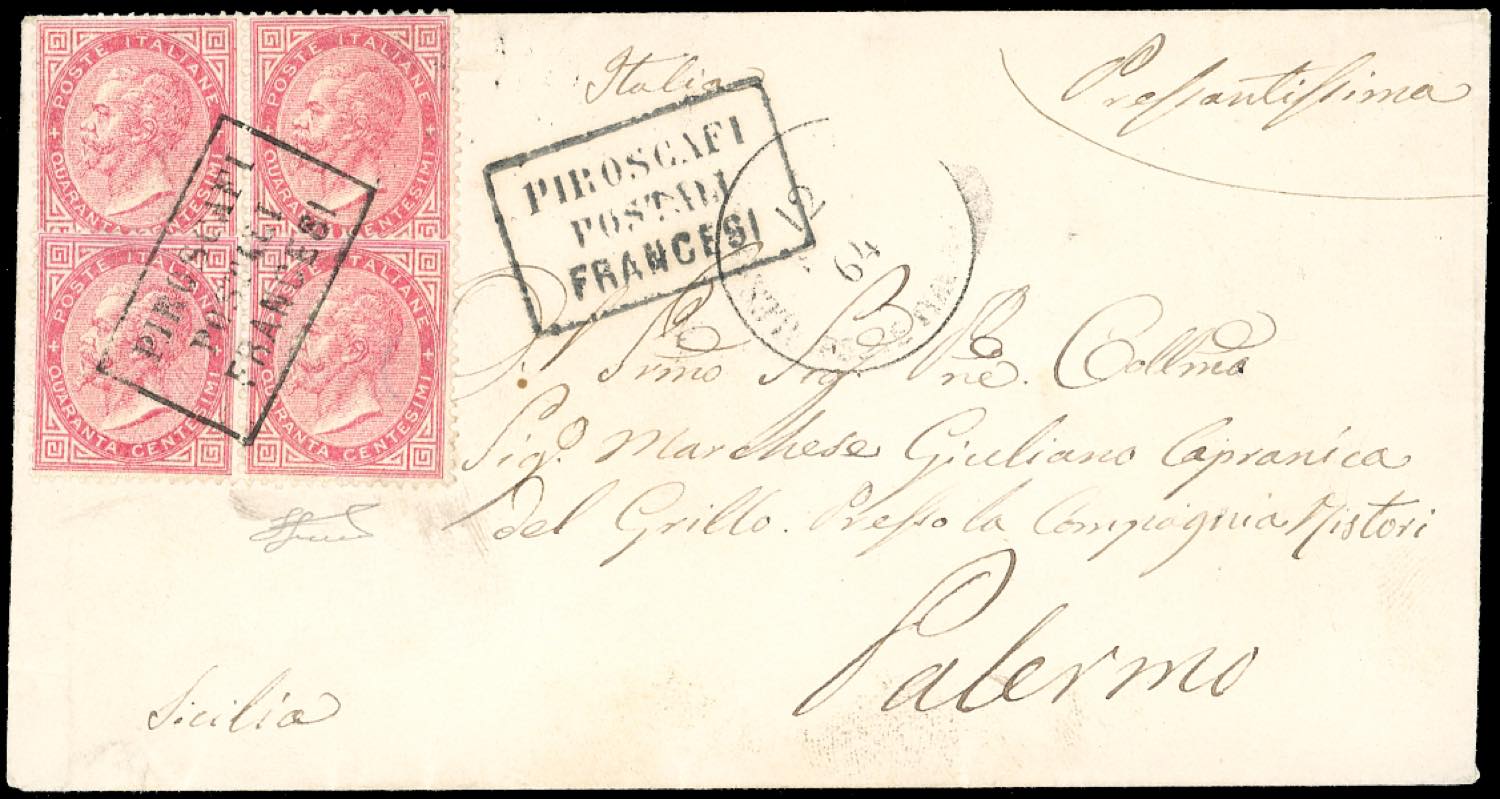 POSTE ITALIANE
QUARANTA CENTESIMI
POSTE ITALIANE
QUARANTA CENTESIMI
POSTE ITALIANE
QUARANTA CENTESIMI
POSTE ITALIANE
QUARANTA CENTESIMI
PIROSCAFI
POSTALI
FRANCESI
Italia
Pressantissima
PIROSCAFI
POSTALI
FRANCESI
12
64
Sig. Pne. Collmo
Sigr. Marchese Giuliano Capranica
del Grillo. Presso la Compagnia Ristori
Palermo
Sicilia